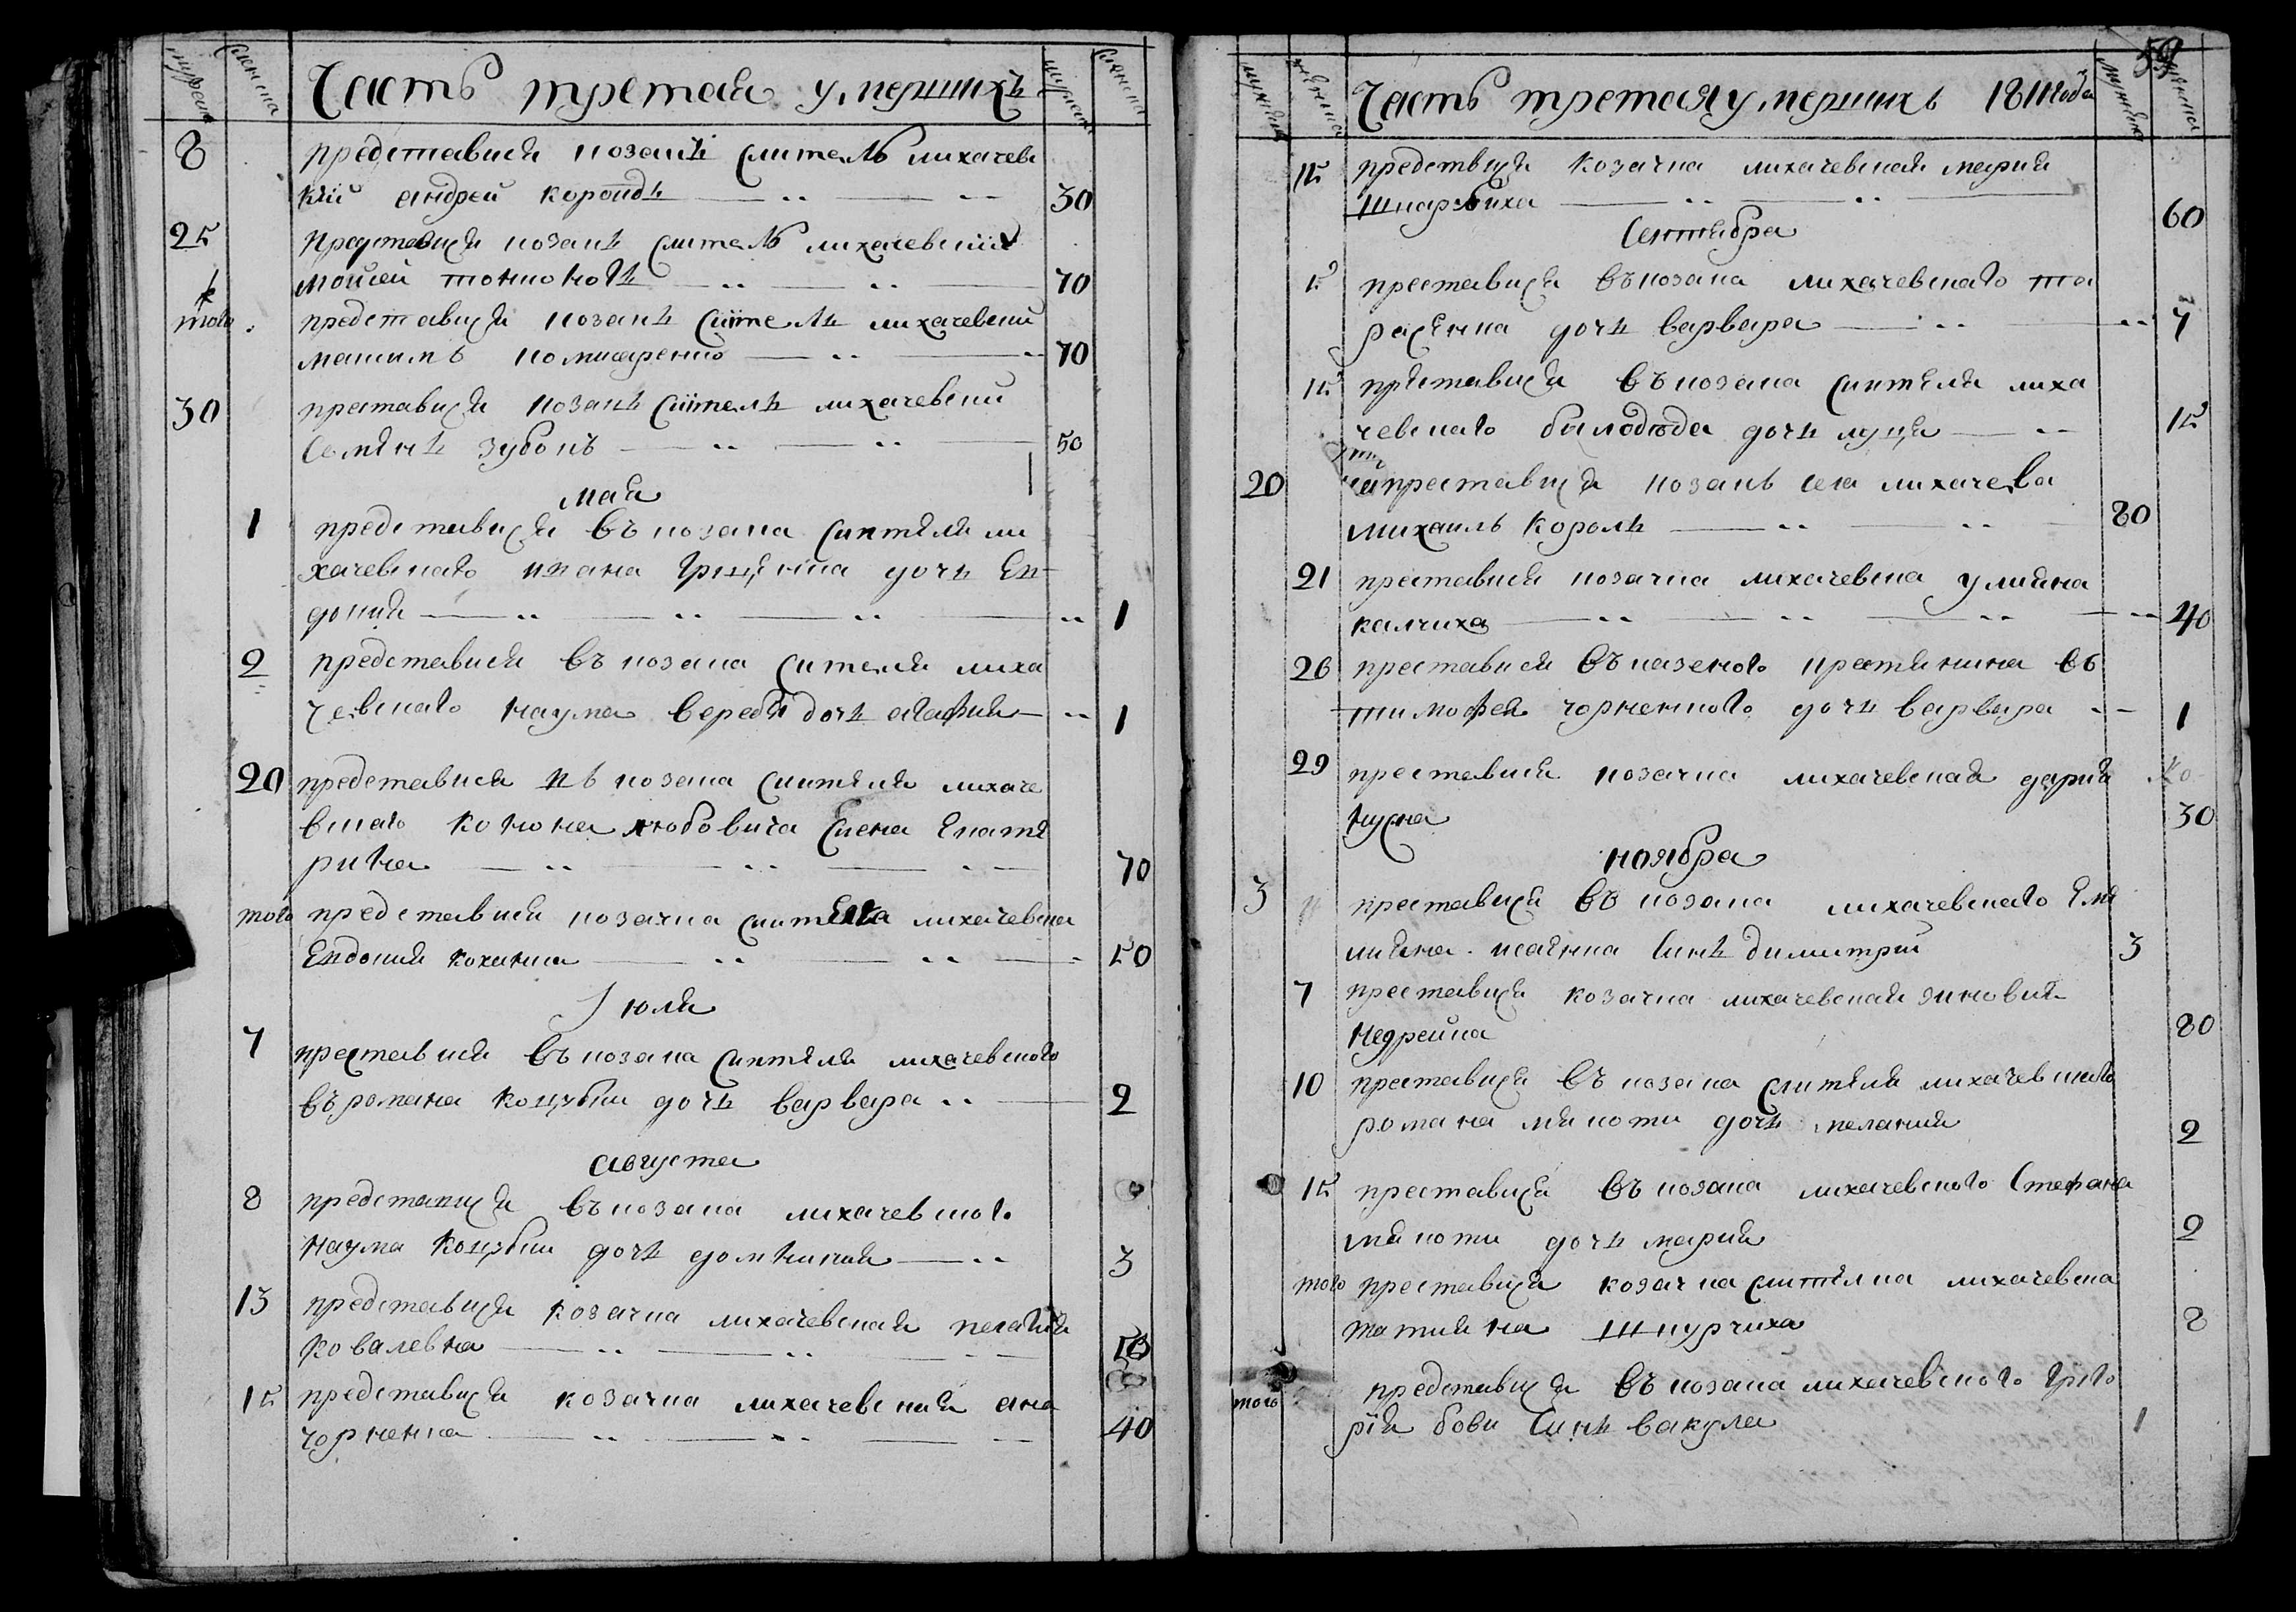 мужеска
женска
Часть третая умершихъ
мужеска
женска
8 представися козакъ житель лихачевс
кій андрей короидъ 30
25 Представися козакъ житель лихачевскій
моисей 70
того представися козакъ житель лихачевский
максимъ 70
30 преставися козакъ житель лихачевский
Семенъ зубокъ 50
мая
1 представися въ козака жителя ли
хачевского ивана гриценка дочъ Ев
докия 1
2 представися въ козака жителя лиха
чевского наума вереби дочъ агафия 1
20 представися в козака жителя лихаче
вского Конона любовича жена Екате
рина 70
того представися козачка жителка лихачевска
Евдокия коханка 50
Июля
7 преставися въ козака жителя лихачевского
въ романа коцубы дочъ варвара 2
августа
8 представися въ козака лихачевского
наума коцубы дочъ домникия 3
13 представися козачка лихачевская пелагия
Ковалевна
15 представися козачка лихачевская ана
чорненка 40
59
мужеска
женска
Часть третая умершихъ 1811 года
мужеска
женска
15 предствися козачка лихачевская мария
60
Сентября
5 преставися въ козака лихачевского та
расенка дочъ варвара 7
15 преставися въ козака жителя лиха
чевского билодида дочъ луція 15
20 преставися козакъ села лихачева
михаилъ король 80
21 преставися козачка лихачевска улияна
калчиха 40
26 преставися въ казеного крестянина въ
тимофея чорненкого дочъ варвара 1
29 преставися козачка лихачевская дария
30
ноября
3 преставися въ козака лихачевского Еме
лияна исаенка Синъ димитрий 3
7 преставися козачка лихачевская зиновия
Недрейка 80
10 преставися въ козака жителя лихачевского
романа мякоти дочъ мелания 2
15 преставися въ козака лихачевского Стефана
мякоти дочъ мария 2
того преставися козачка жителка лихачевска
татияна шнурчиха 8
того представися въ козака лихачевского григо
рія бови Синъ вакула 1